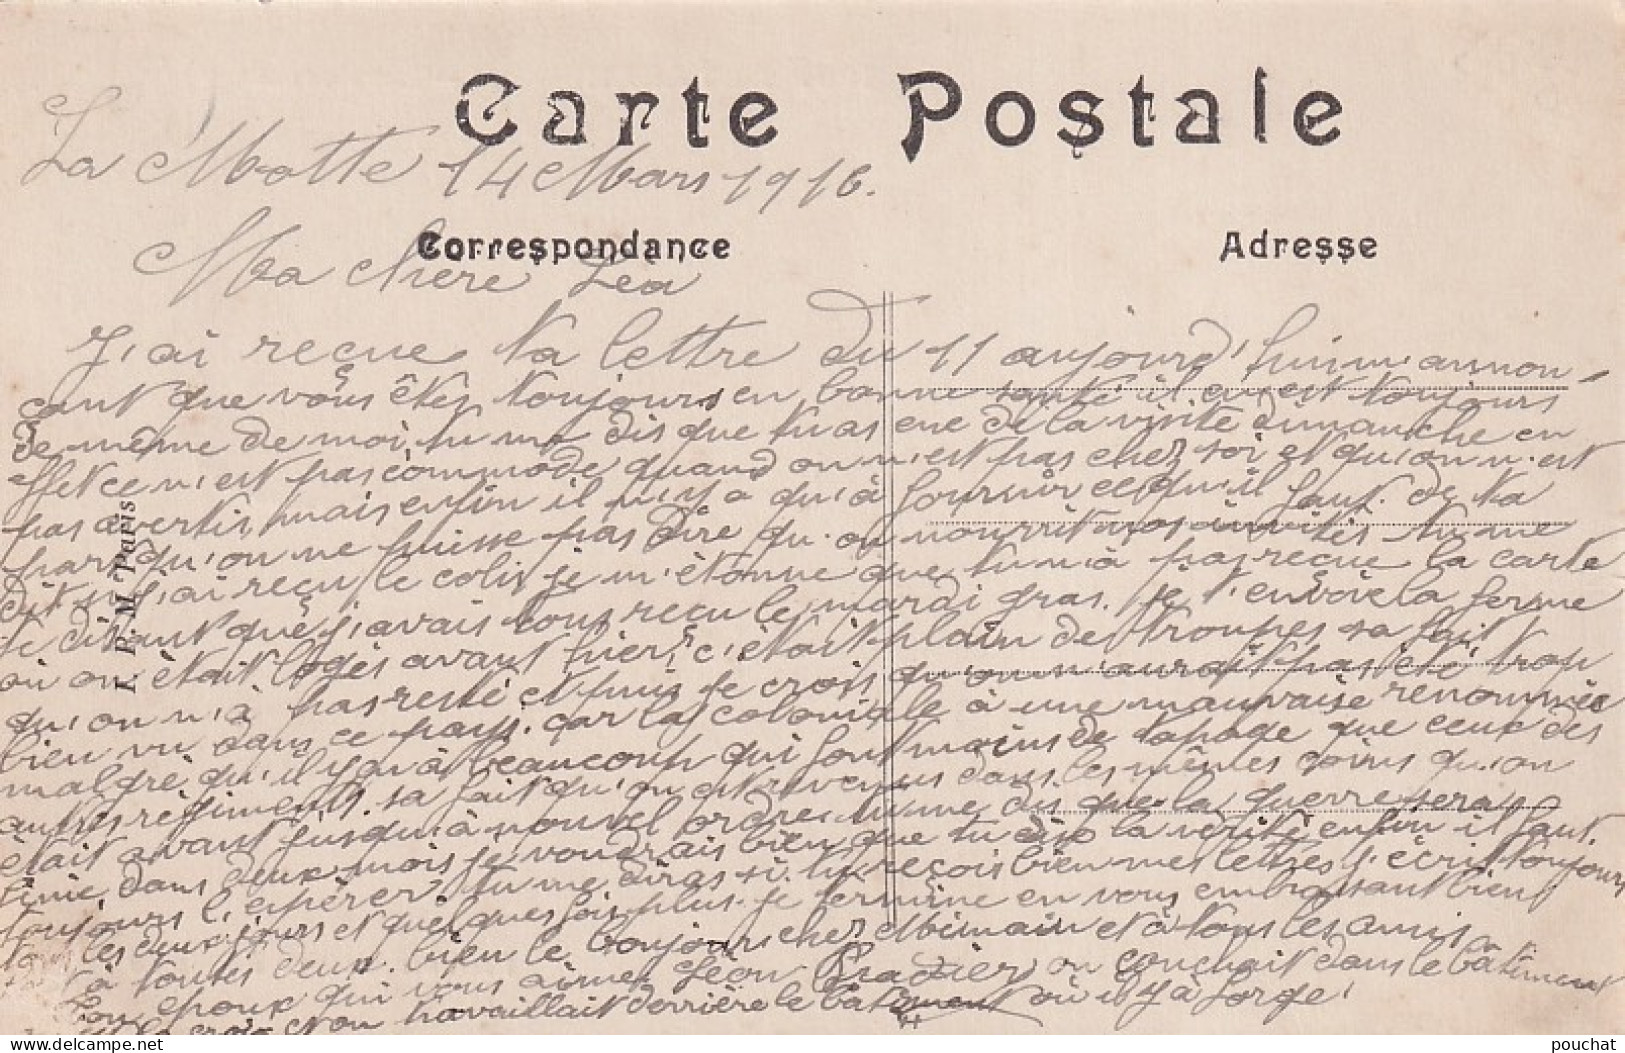 Carte Postale
La Motte 14 Mars 1916.
Correspondance
Adresse
Ma chere Léa
J'ai reçue ta lettre du 11 aujourd'hui m'annon-
çant que vous êtes toujours en bonne santé il en est toujours
de même de moi, tu me dis que tu as eue de la visite dimanche en
effet ce n'est pas commode quand on n'est pas chez soi et qu'on n'est
pas avertis, mais enfin il n'y a qu'à fournir ce qu'il faut. de ta
part qu'on ne puisse pas dire qu'on nourrit nos invités tu me
dit j'ai reçu le colis je m'étonne que tu n'à pas reçue la carte
te disant que j'avais tous reçu le mardi gras. je t'envoie la ferme
où on était logés avant hier, c'était plain de troupes sa fait
qu'on n'à pas resté et puis je crois qu'on n'aurait pas été trop
bien vu dans ce pays. car la coloniale à une mauvaise renommée
malgré qu'il y en à beaucoup qui font moins de tapage que ceux des
autres régiments. sa fait qu'on est revenus dans les mêmes coins qu'on
était avant jusqu'à nouvel ordre. tu me dis que la guerre sera
finie dans deux mois je voudrais bien que tu dise la vérité enfin il faut
toujours l'espérer tu me diras si tu reçois bien mes lettres j'écrit toujours
tous les deux jours et quelques fois plus. je termine en vous embrassant bien
à toutes deux. bien le bonjour chez Mimain et à tous les amis
Ton époux qui vous aime Léon Pradier on couchait dans le bâtiment
la croix et on travaillait derrière le bâtiment où il y à forge.
I. P. M. Paris
pouchat
delcampe.net